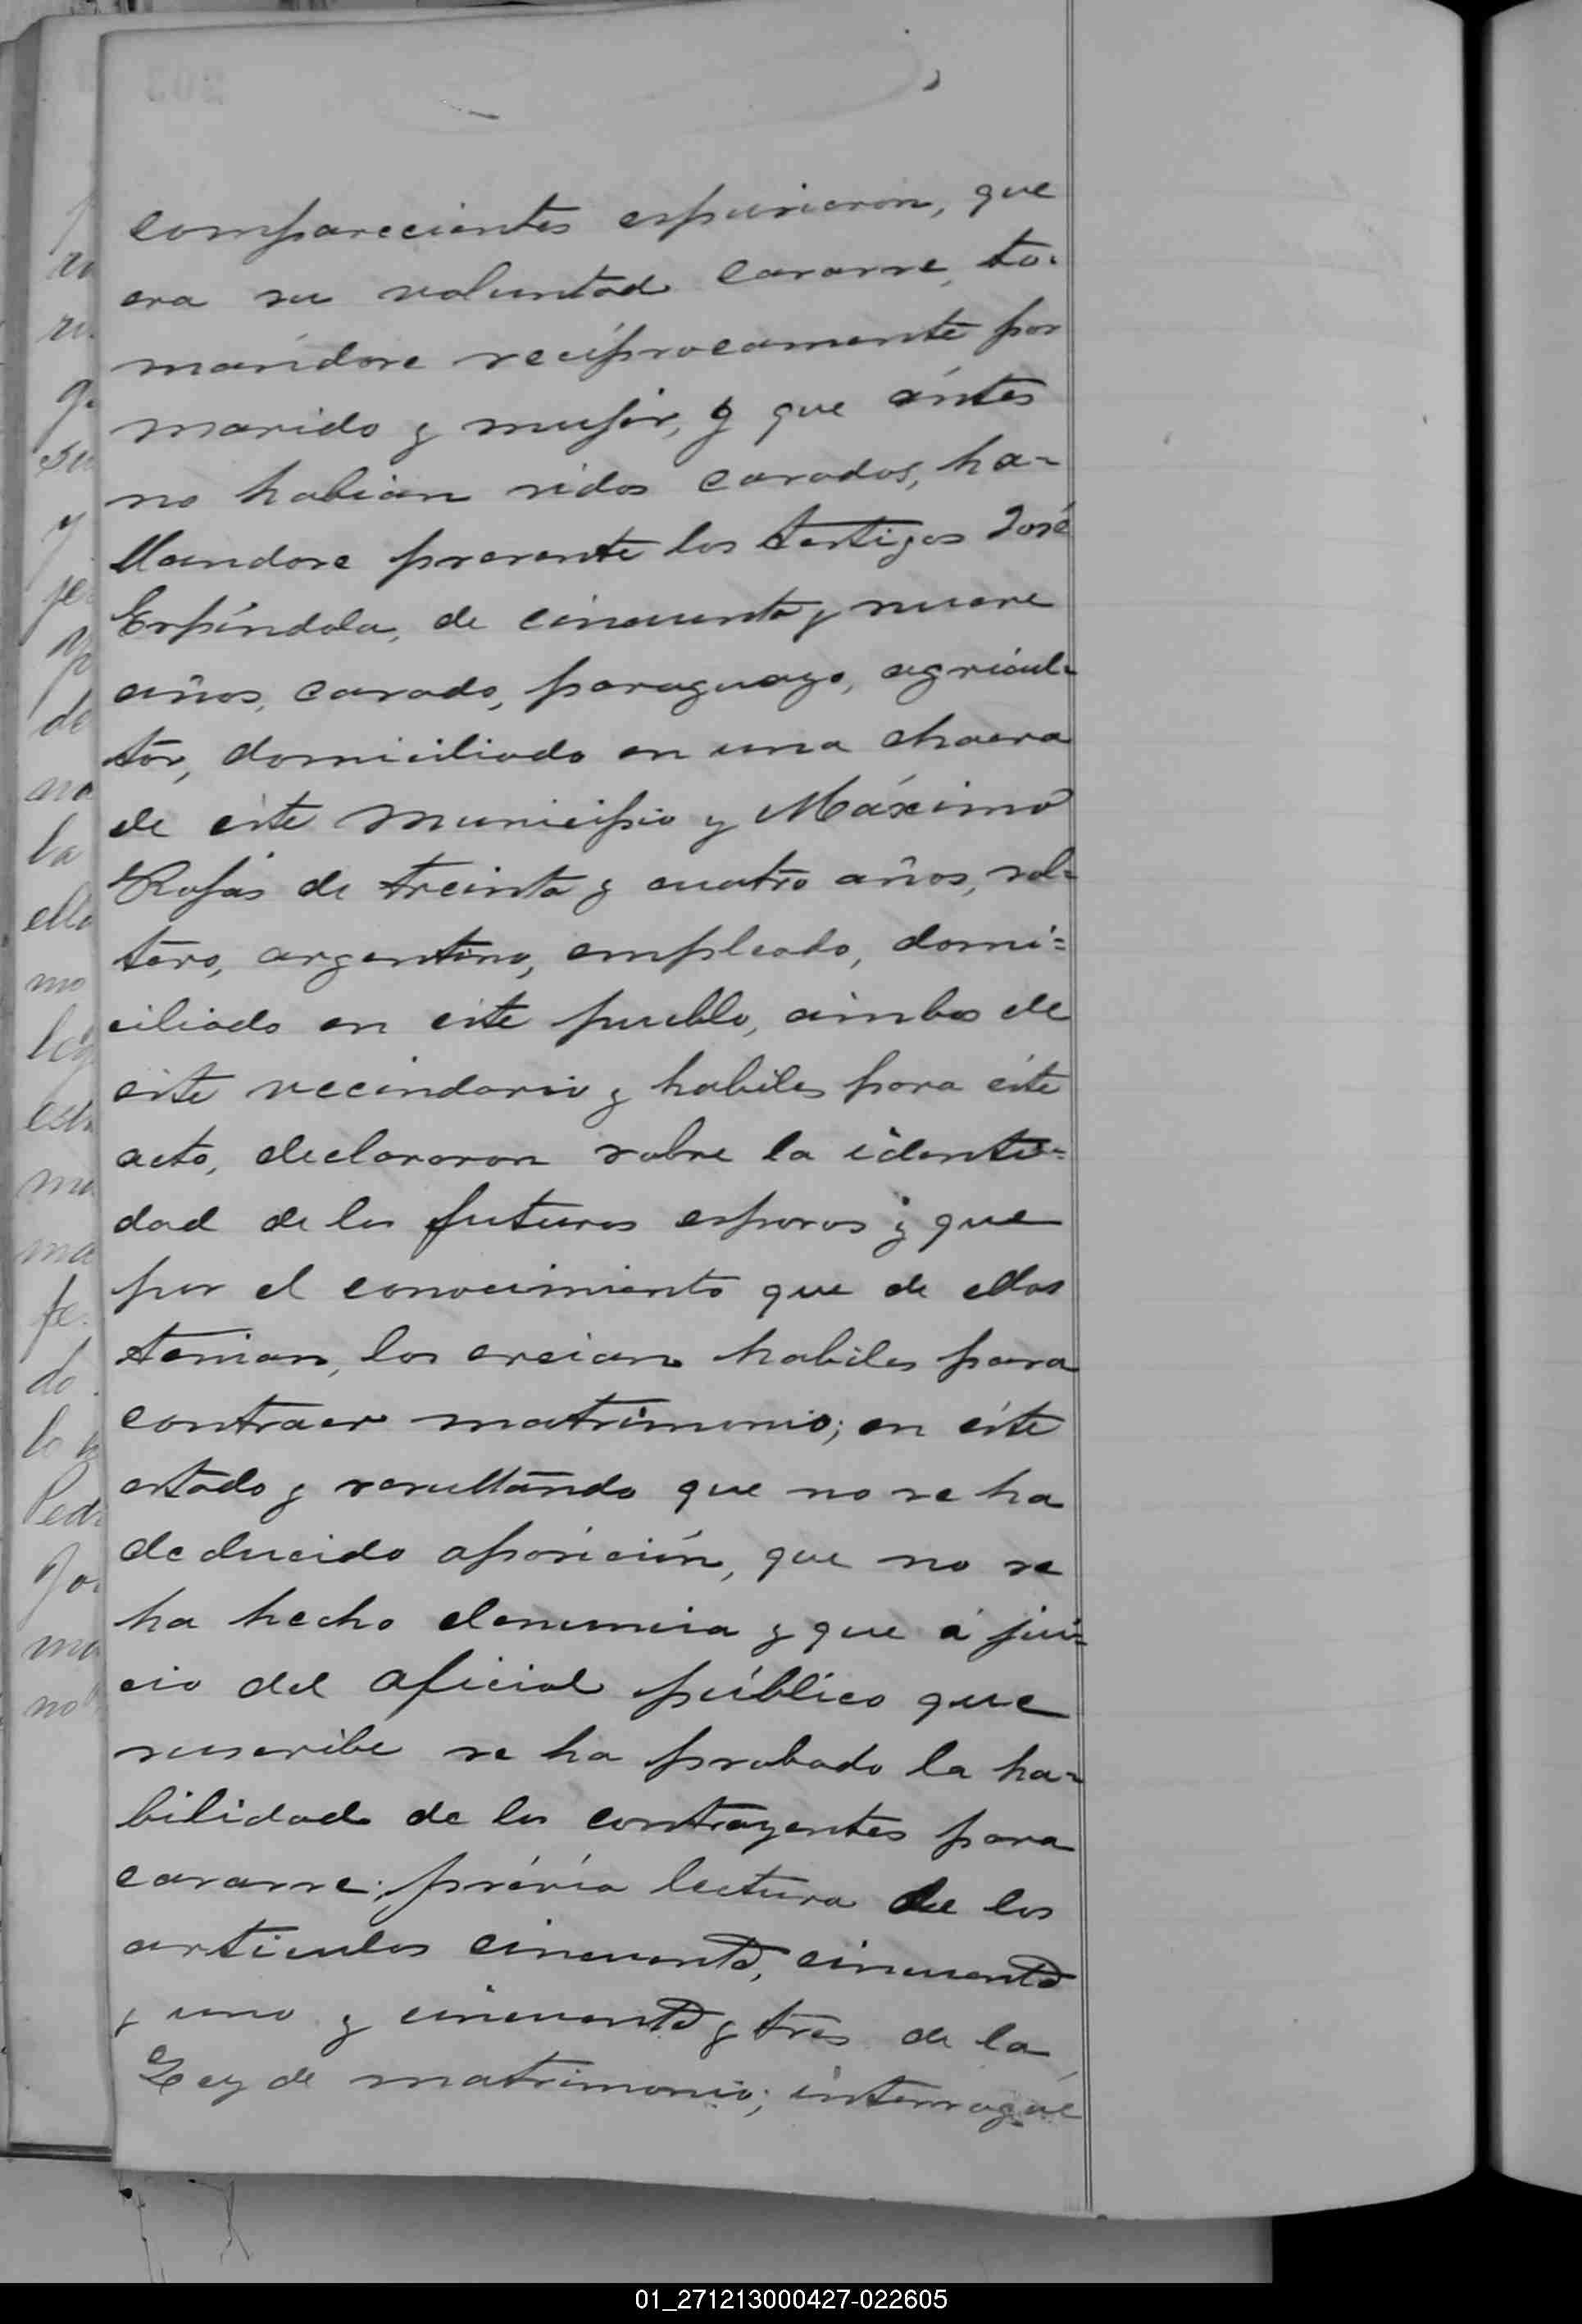 comparecientes espusieron, que
era su voluntad casarse, to-
mandose recíprocamente por
marido y mujer, y que ántes
no habian sidos casados, ha-
llandose presente los testigos José
Espíndola, de cincuenta y nueve
años, casado, paraguayo, agricul-
tor, domiciliado en una chacra
de éste Municipio y Máximo
Rojas de treinta y cuatro años, sol-
tero, argentino, empleado, domi-
ciliado en éste pueblo, ámbos de
éste vecindario y habiles para éste
acto, declararon sobre la identi-
dad de los futuros esposos y que
por el conocimiento que de ellos
tenian, los creian habiles para
contraer matrimonio; en éste
estado y resultando que no se ha
deducido oposición, que no se
ha hecho denuncia y que á jui-
cio del oficial público que
suscribe se ha probado la ha-
bilidad de los contrayentes para
casarse; prévia lectura de los
articulos cincuenta, cincuenta
y uno y cincuenta y tres de la
Ley de matrimonio; interrogué
01_271213000427-022605